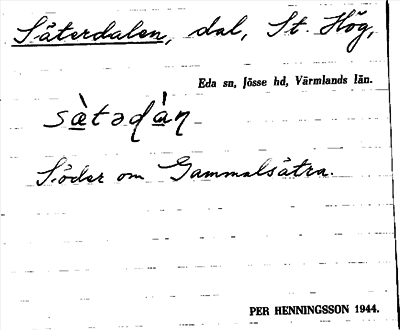 Säterdalen, dal, St. Hög,
Eda sn, Jösse hd, Värmlands län.
sæ̀tədὰɳ
Söder om Gammalsätra.
PER HENNINGSSON 1944.